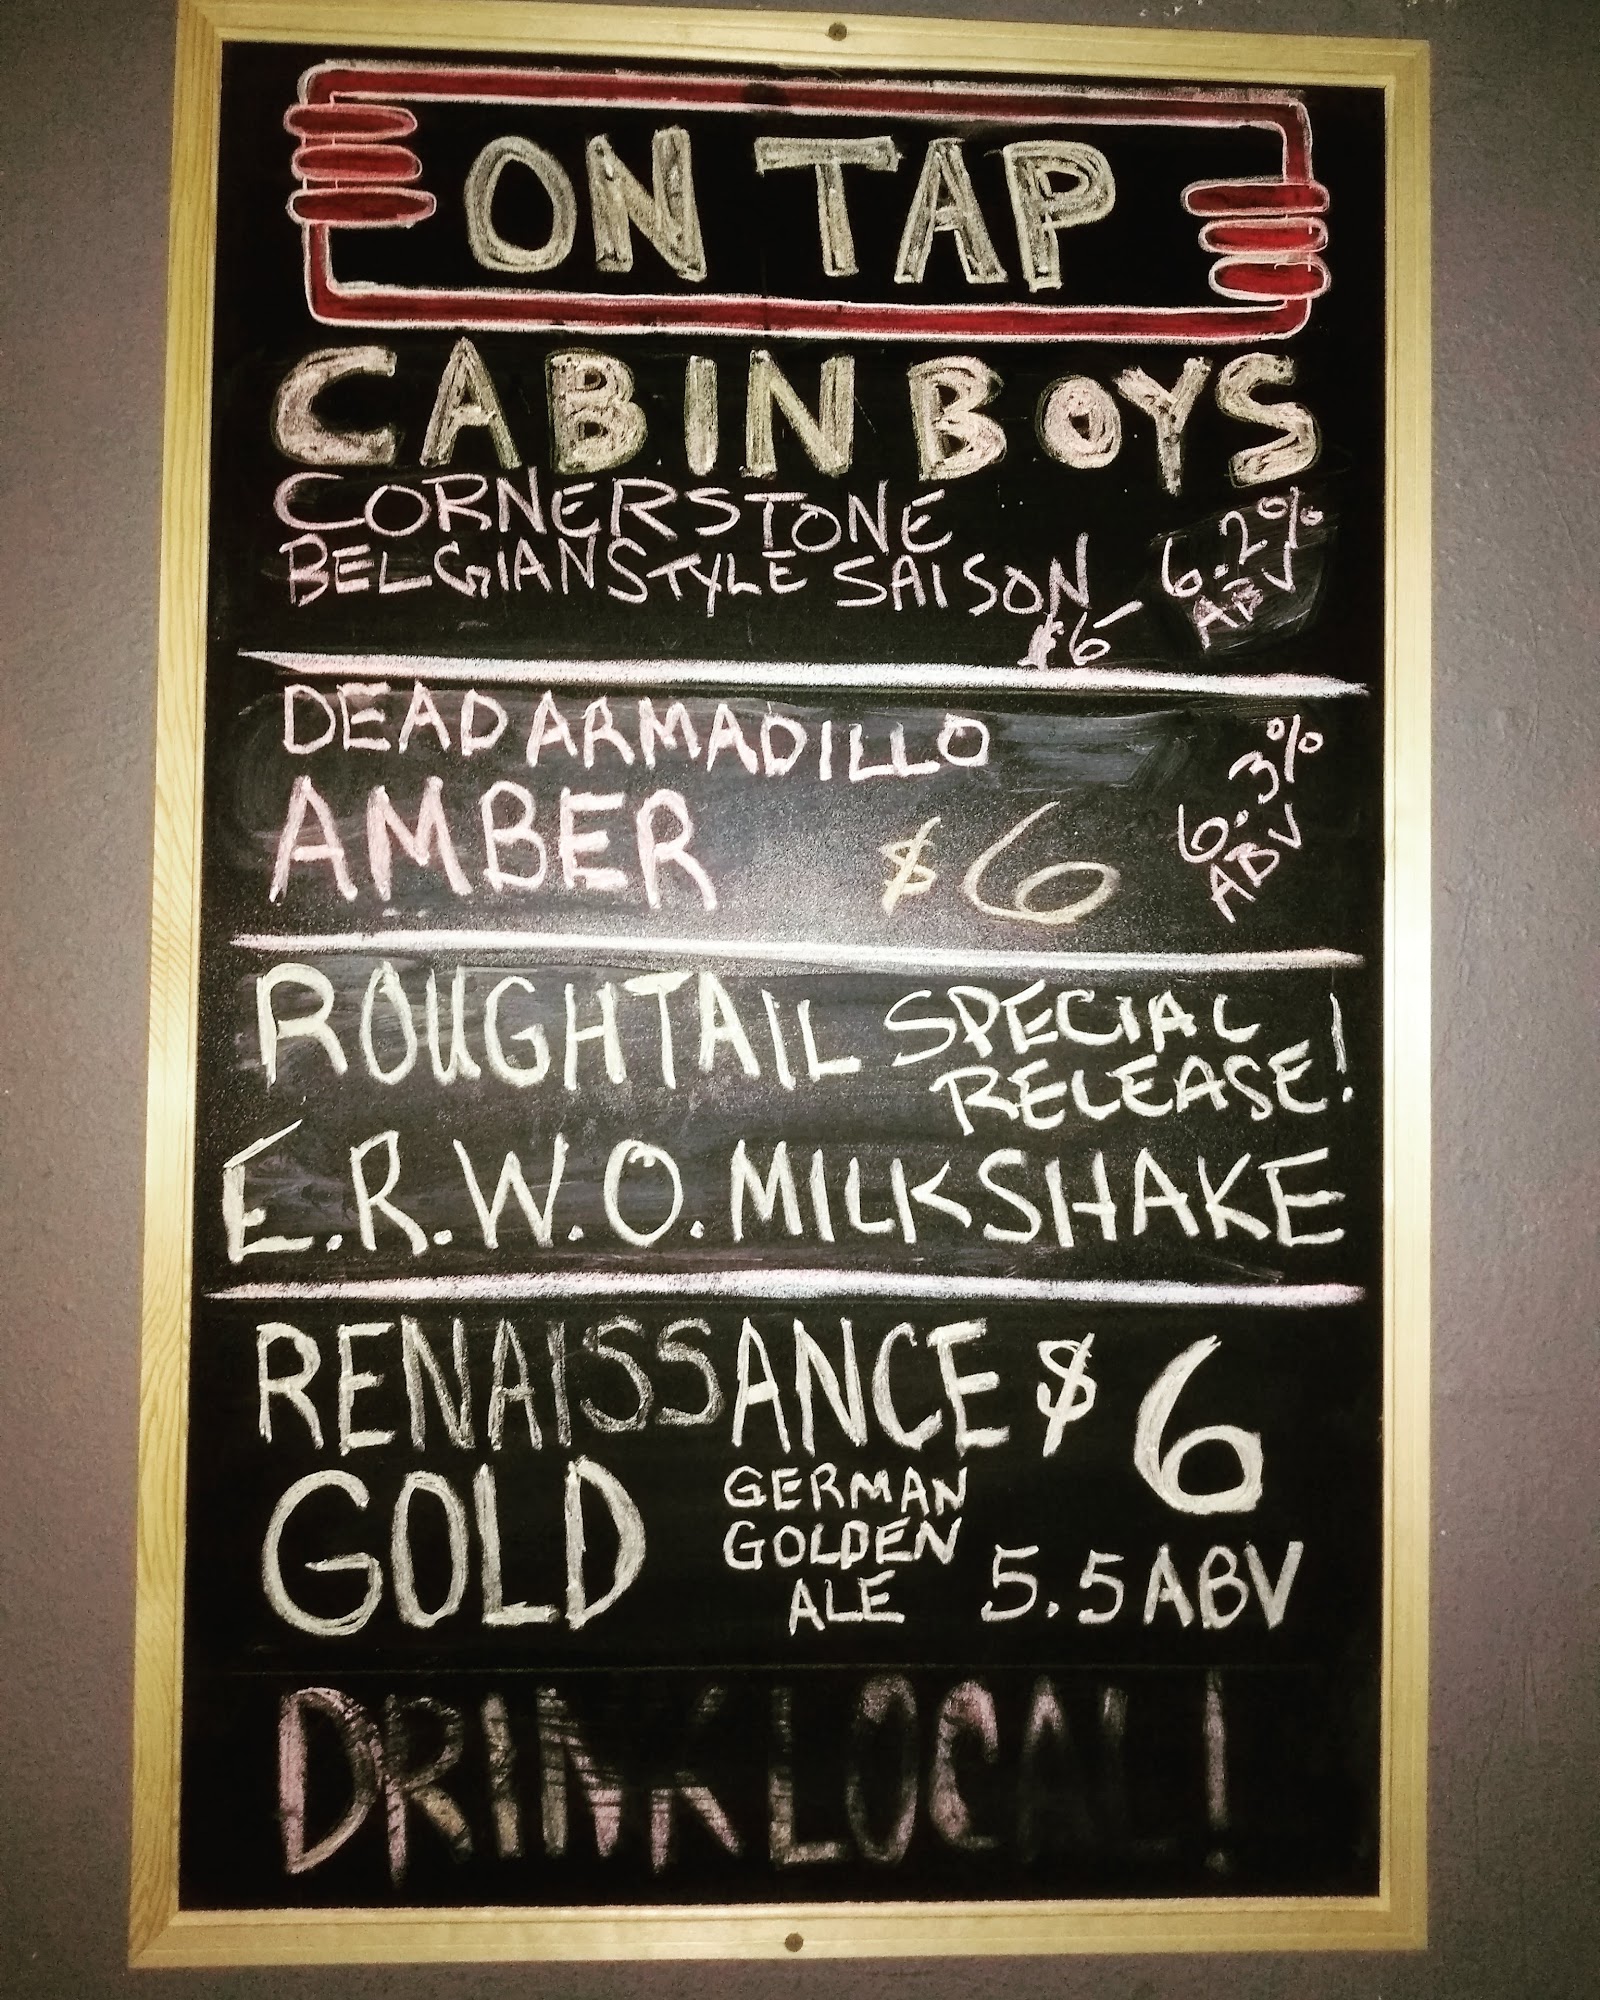 ON TAP
CABIN BOYS
CORNERSTONE
BELGIAN STYLE SAISON
$6
6.2%
ABV
DEAD ARMADILLO
AMBER $6
6.3%
ABV
ROUGHTAIL SPECIAL
RELEASE!
E.R.W.O. MILKSHAKE
RENAISSANCE $6
GOLD
GERMAN
GOLDEN
ALE
5.5 ABV
DRINK LOCAL!